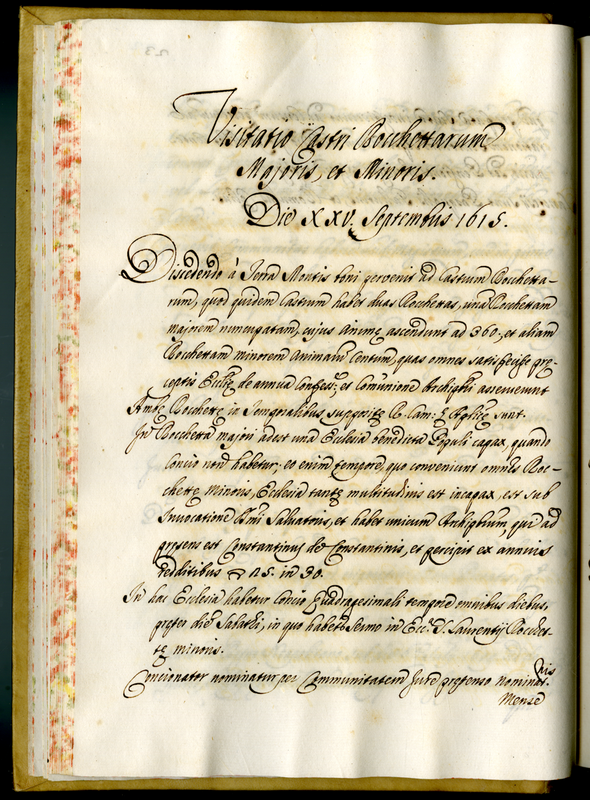 Visitatio Castri Rocchettarum
Majoris, et Minoris.
Die XXV. Septembris 1615.
Discedendo à Terra Montis boni pervenit ad Castrum Rocchetta-
rum, quod quidem Castrum habet duas Rocchettas, unã Rocchettam
majorem nuncupatam, cujus animę ascendunt ad 360., et aliam
Rocchettam minorem Animarũ Centum, quas omnes satisfecisse prę-
ceptis Eccłię de annua Confess:, et Comũnione Archipbri asseruerunt
Ambę Rocchettę in Temporalibus suppositę R. Cam: Aplicę sunt.
In Rocchetta majori adest una Ecclesia benedicta Populi capax, quando
Concio non habetur, eo enim tempore, quo conveniunt omnes Roc-
chettę Minoris, Ecclesia tantę multitudinis est incapax, est sub
Invocatione SSmi Salvatoris, et habet unicum Archipbrum, qui ad
pręsens est Constantinus de Constantinis, et percipit ex annuis
redditibus 25. in 30.
In hac Ecclesia habetur Concio Quadragesimali tempore omnibus diebus,
pręter diẽ Sabathi, in quo habetr Sermo in Eccã S. Laurentij Rocchet-
tę minoris.
Concionator nominatur per Communitatem Jure prętenso nominãnis
Mensę